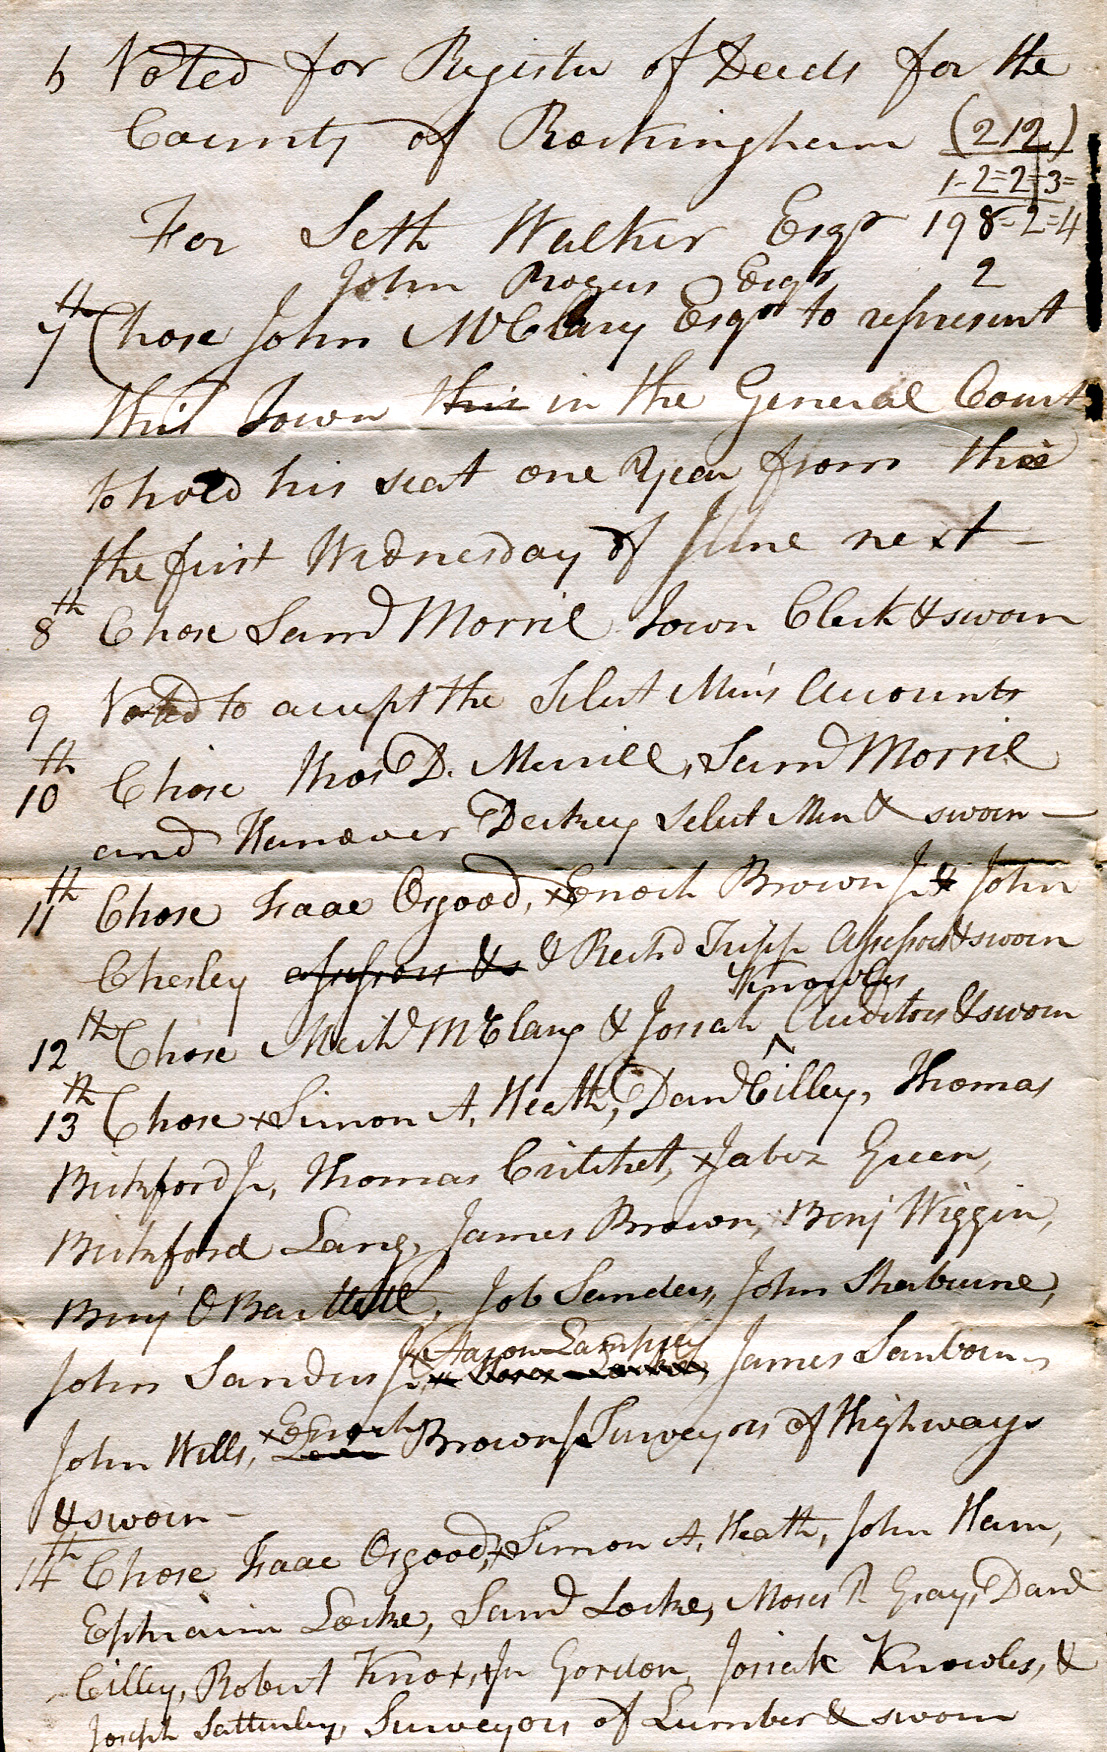 6 Voted for Register of Deeds for the
County of Rockingham (212)
1-2=2=3=
For Seth Walker Esqr 198-2=4
John Rogers Esqr 2
7th Chose John McClary Esqr to represent
this Town this in the General Court
to hold his seat one Year from this
the first Wednesday of June next -
8th Chose Saml Morril Town Clerk & sworn
9 Voted to accept the Select Men's Accounts
10th Chose Thos D. Merrill, Saml Morril
and Hanover Dickey Select Men & sworn -
11th Chose Isaac Osgood, x Enoch Brown Jr & John
Chesley assessors & s & Richd Tripp Assessors & sworn
Knowles
12th Chose Michl McClary & Josiah ^ Auditors & sworn
13th Chose x Simon A. Heath, Danl Cilley, Thomas
Bickford Jr, Thomas Critchet, x Jabez Green,
Bickford Lang, James Brown, Benj Wiggin,
Benj O Bartlett, Job Sanders, John Sherburne,
Aaron Lamprey
John Sanders Jr, James Sanborn
Enoch
John Wells, x Levi Brown Jr Surveyors of Highways
& sworn -
14th Chose Isaac Osgood, x Simon A. Heath, John Ham,
Ephraim Locke, Saml Locke, Moses R Gray, Danl
Cilley, Robert Knox, Jr Gordon, Josiah Knowles, &
Joseph Satterley, Surveyors of Lumber & sworn